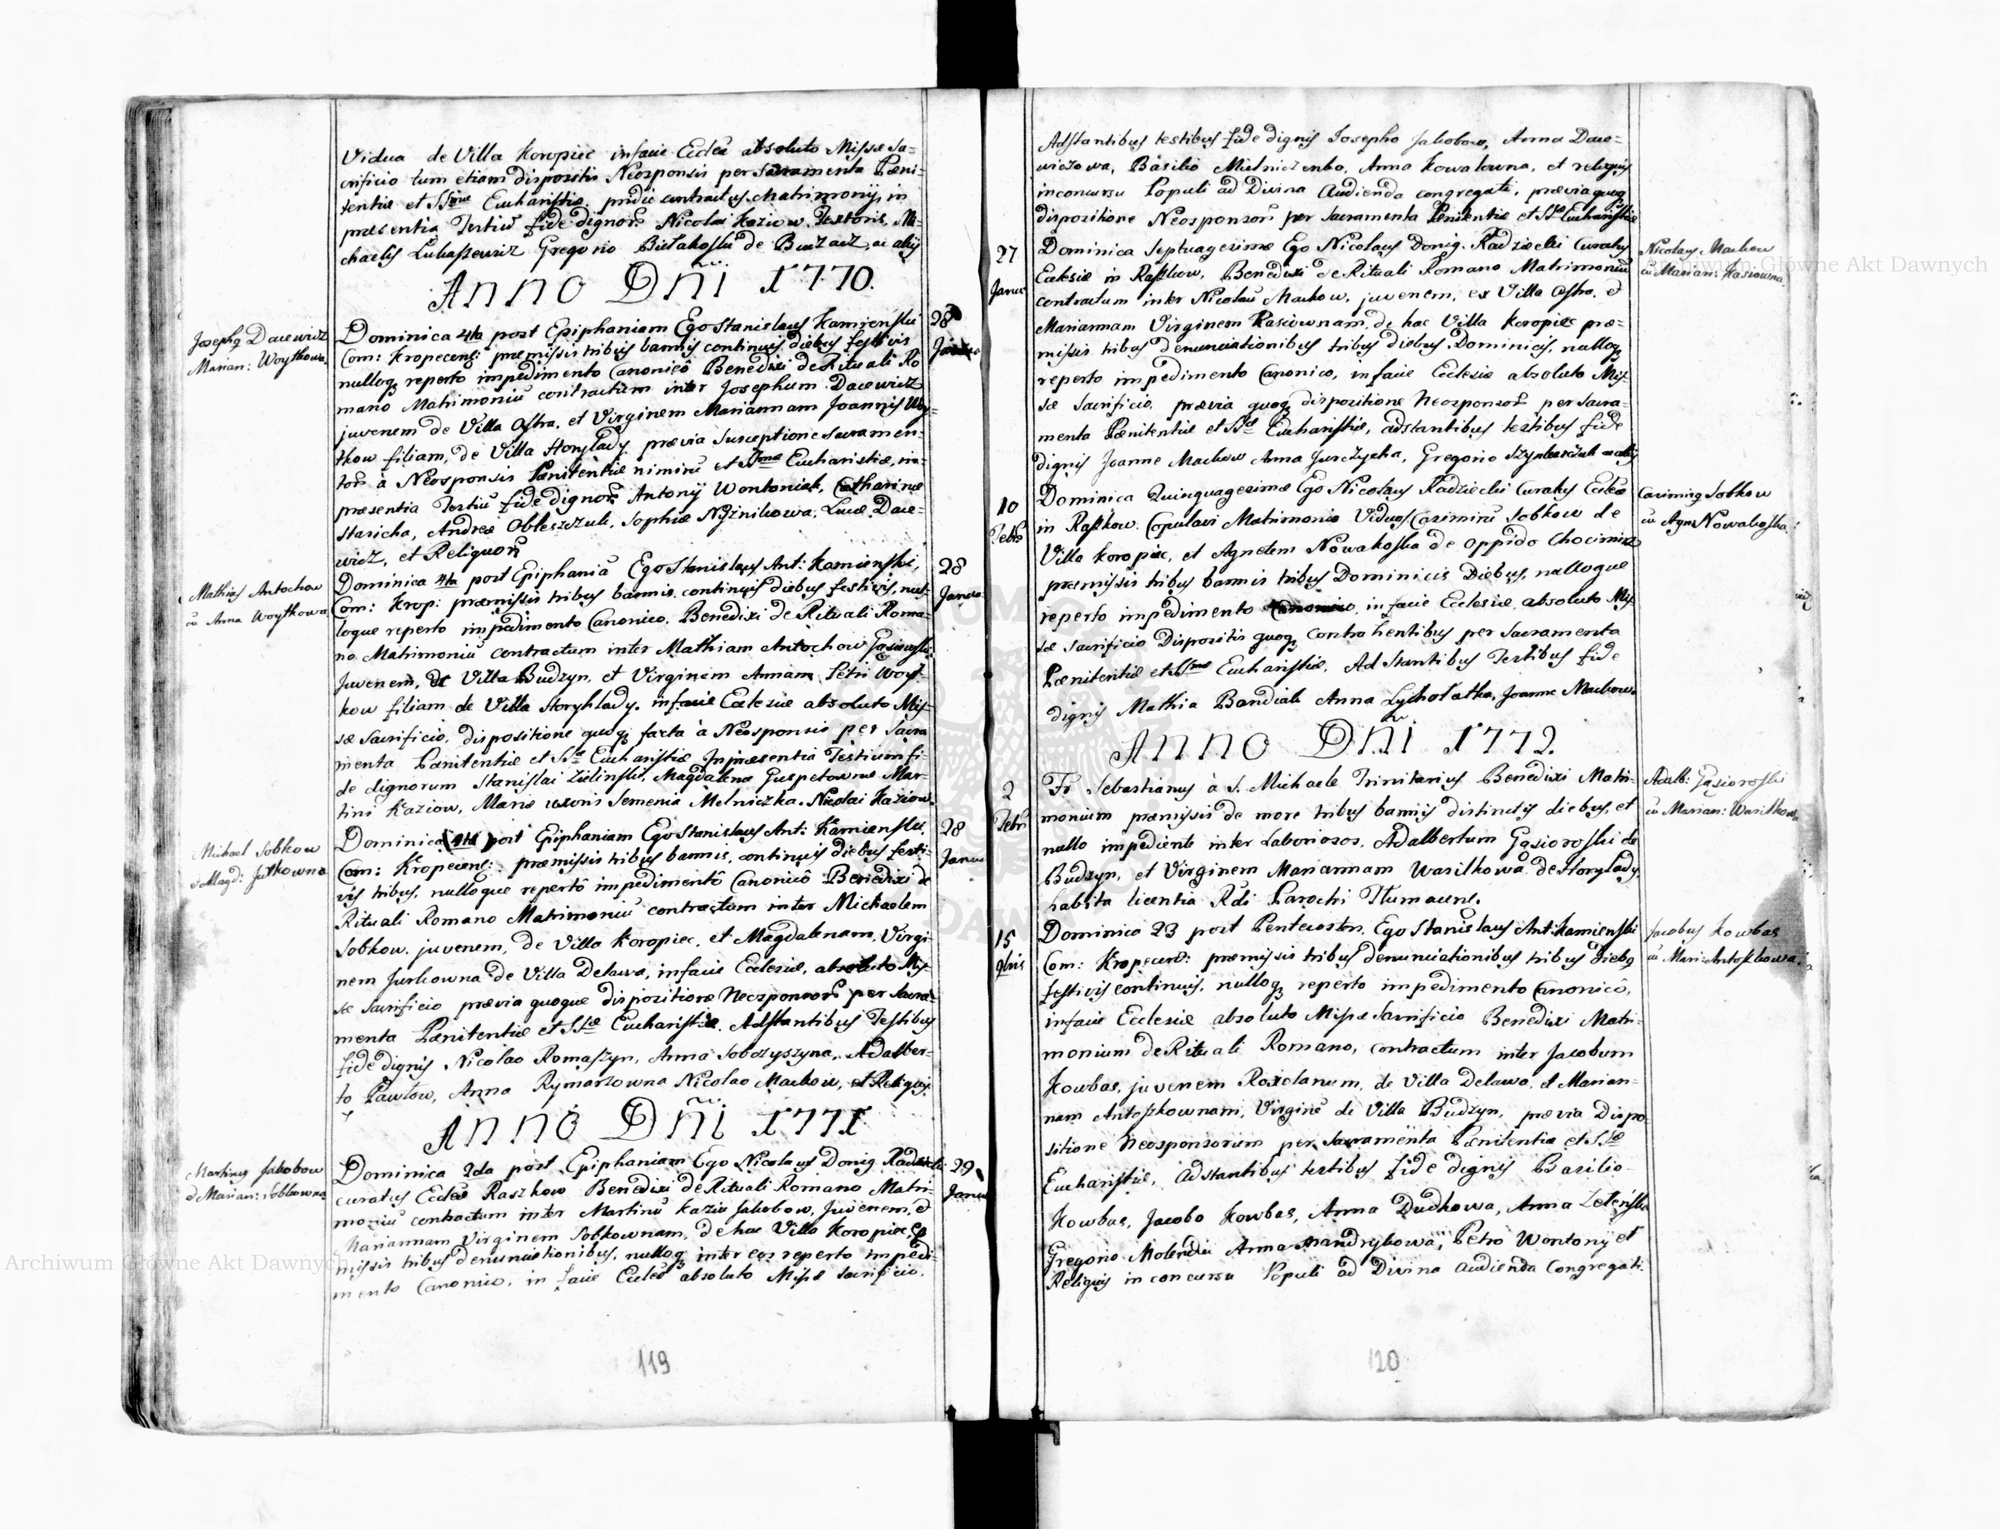 Vidua de Villa Koropiec in facie Eccles absoluto Missæ Sa-
crificio tum etiam dispositis Neosponsis per Sacramenta Pæni-
tentiæ et SSmæ Eucharistiæ pridie contractus Matrimonij, in
præsentia Testiū fide dignorū Nicolai Kaziow Mi-
chaelis Łukaszewicz Gregorio de Buczacz ac alijs
ANNO DÑI 1770.
Josephq Dacewicz
Marian: Woytkowa
Dominica 4ta post Epiphaniam Ego Stanislaus Kamienski
Com: Kropecens: præmissis tribus bannis continuis diebus festivis
nulloq reperto impedimento Canonicô Benedixi de Rituali Ro
mano Matrimoniū contractum inter Josephum Dacewicz
juvenem de Villa Ostra, et Virginem Mariannam Joannis Woy-
tkow filiam, de Villa Horyhlady prævia Susceptione Sacramen-
torū à Neosponsis Pænitentiæ nimirū et SSmæ Eucharistiæ, in
præsentia Testiū fide dignorū Antonij Wontoniak, Catharinæ
Stasicha, Andreæ Obleszczuk, Sophiæ Nyżnikowa, Lucæ Dace-
wicz, et Reliquorū
28
Januar
Mathias Antochow
cū Anna Woytkowa
Dominica 4ta post Epiphaniā Ego Stanislaus Ant: Kamienski,
Com: Krop: præmissis tribus bannis continuis diebus festivis, nul-
loque reperto impedimento Canonico, Benedixi de Rituali Roma-
no Matrimoniū contractum inter Mathiam Antochow
Juvenem, de Villa Budzyn, et Virginem Annam Petri Woyt-
kow filiam de Villa Horyhlady, in facie Ecclesiæ absoluto Mis-
sæ Sacrificio, dispositione quoq facta à Neosponsis per Sacra
menta Pænitentiæ et SSæ Eucharistiæ In præsentia Testium fi-
de dignorum Stanislai Zielinski, Magdalenæ Mar-
tini Kaziow, Mariæ uxoris Semenia Melniczka, Nicolai Kaziow
28
Januar
Michael Sobkow
et Magd: Jurkowna
Dominica 4ta post Epiphaniam Ego Stanislaus Ant: Kamienski
Com: Kropecens: præmissis tribus bannis, continuis diebus festi-
vis tribus, nulloque repertô impedimentô Canonicô Benedixi de
Rituali Romano Matrimoniū contractum inter Michaelem
Sobkow, juvenem, de Villa Koropiec, et Magdalenam, Virgi-
nem Jurkowna de Villa Delawa, in facie Ecclesiæ, absoluto Mis-
sæ Sacrificio prævia quoque dispositione Neosponsorū per Sacra-
menta Pænitentiæ et SSæ Eucharistiæ. Adstantibus Testibus
fide dignis Nicolao Romaszyn, Anna Sobczyszyna, Adalber-
to Pawłow, Anna Rymarzowna Nicolao Mackow, et Reliquis
28
Januar
ANNO DÑI 1771
Martinus Jakobow
et Marian: Sobkowna
Dominica 2da post Epiphaniam Ego Nicolaus Donig. Radziecki
curatus Eccles Raszkow Benedixi de Rituali Romano Matri-
moniū contractum inter Martinū Kaziu Jakobow, Juvenem, et
Mariannam Virginem Sobkownam, de hac Villa Koropiec, p
missis tribus denunciationibus, nulloq inter eos reperto impedi
mento Canonico, in facie Eccles absoluto Missæ Sacrificio.
29
Januar
119
Adstantibus testibus fide dignis Josepho Jakobow, Anna Dace-
wiczowa, Basilio Mielniczenko, Anna Kowalowna, et reliquis
in concursu Populi ad Divina Audienda congregati, prævia quoq
dispositione Neosponsorū per Sacramenta Pænitentiæ et SSæ Eucharistiæ
27
Januar
Dominica Septuagesimæ Ego Nicolaus Donig. Radziecki Curatus
Ecclesiæ in Raszkow, Benedixi de Rituali Romano Matrimoniū
contractum inter Nicolaū Mackow, juvenem, ex Villa Ostra, et
Mariannam Virginem Kasiownam, de hac Villa Koropiec præ-
missis tribus denunciationibus tribus diebus Dominicis, nulloq
reperto impedimento Canonico, in facie Ecclesiæ absoluto Mis-
sæ Sacrificio, prævia quoq dispositione Neosponsorū per Sacra-
menta Pænitentiæ et SSæ Eucharistiæ, adstantibus testibus fide
dignis Joanne Mackow Anna Jurczycha, Gregorio
Nicolaus Mackow
cū Marian: Kasiowna
10
Febr
Dominica Quinquagesimæ Ego Nicolaus Radziecki Curatus Eccles
in Raszkow Copulavi Matrimonio Viduos Casimirū Sobkow de
Villa Koropiec, et Agnetem Nowakoska de oppido Chocimirz
præmissis tribus bannis tribus Dominicis Diebus, nulloque
reperto impedimento Canonico, in facie Ecclesiæ, absoluto Mis-
sæ Sacrificio Dispositis quoq Contrahentibus per Sacramenta
Pænitentiæ et SSmæ Eucharistiæ, Adstantibus Testibus fide
dignis Mathia Bandiak Anna Lychołatka, Joanne Mackow
Casimirus Sobkow
cū Agn Nowakoska
ANNO DÑI 1772.
2
Febr
Fr Sebastianus à S. Michaele Trinitarius Benedixi Matri-
monium præmissis de more tribus bannis distinctis diebus, et
nullo impediente inter Laboriosos, Adalbertum Gąsioroski de
Budzyn, et Virginem Mariannam Wasilkowa de Horyhlady,
habita licentia Rdi Parochi Tłumacens.
Adalb: Gąsioroski
cū Marian: Wasilkowa
15
9bris
Dominica 23 post Pentecosten, Ego Stanislaus Ant: Kamienski
Com: Kropecens: præmissis tribus denunciationibus tribus diebq
festivis continuis, nulloq reperto impedimento Canonicô,
in facie Ecclesiæ absoluto Missæ Sacrificio Benedixi Matri-
monium de Rituali Romano, contractum inter Jacobum
Kowbas, juvenem Roxolanum, de Villa Delawa, et Marian-
nam Antoszkownam, Virginē de Villa Budzyn, prævia Dispo-
sitione Neosponsorum per Sacramenta Pænitentiæ et SSæ
Eucharistiæ, adstantibus testibus fide dignis Basilio
Kowbas, Jacobo Kowbas, Anna Dudkowa, Anna Zeleńska
Gregorio Molendii Anna Mandrykowa, Petro Wontonij et
Reliquis in concursu Populi ad Divina audienda Congregati.
Jacobus Kowbas
cū Mari: Antoszkowna
120
Archiwum Główne Akt Dawnych
Archiwum Główne Akt Dawnych